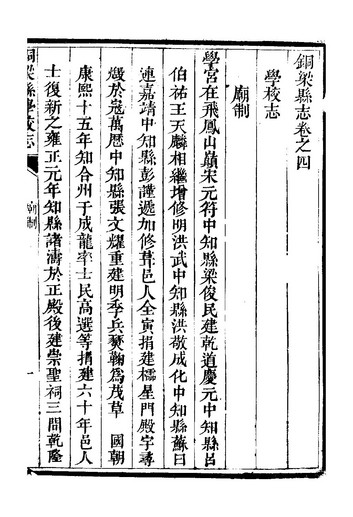 銅梁縣志卷之四
學校志
廟制
學宮在飛鳳山巔宋元符中知縣梁俊民建乾道慶元中知縣呂
伯祐王天麟相繼增修明洪武中知縣洪敬成化中知縣蘇曰
連嘉靖中知縣彭謹遞加修葺邑人全寅捐建櫺星門殿宇尋
燬於寇萬曆中知縣張文耀重建明季兵燹鞠爲茂草 國朝
康熙十五年知合州于成龍率士民高選等捐建六十年邑人
士復新之雍正元年知縣諸濤於正殿後建崇聖祠三間乾隆
銅梁縣學校志
廟制
一